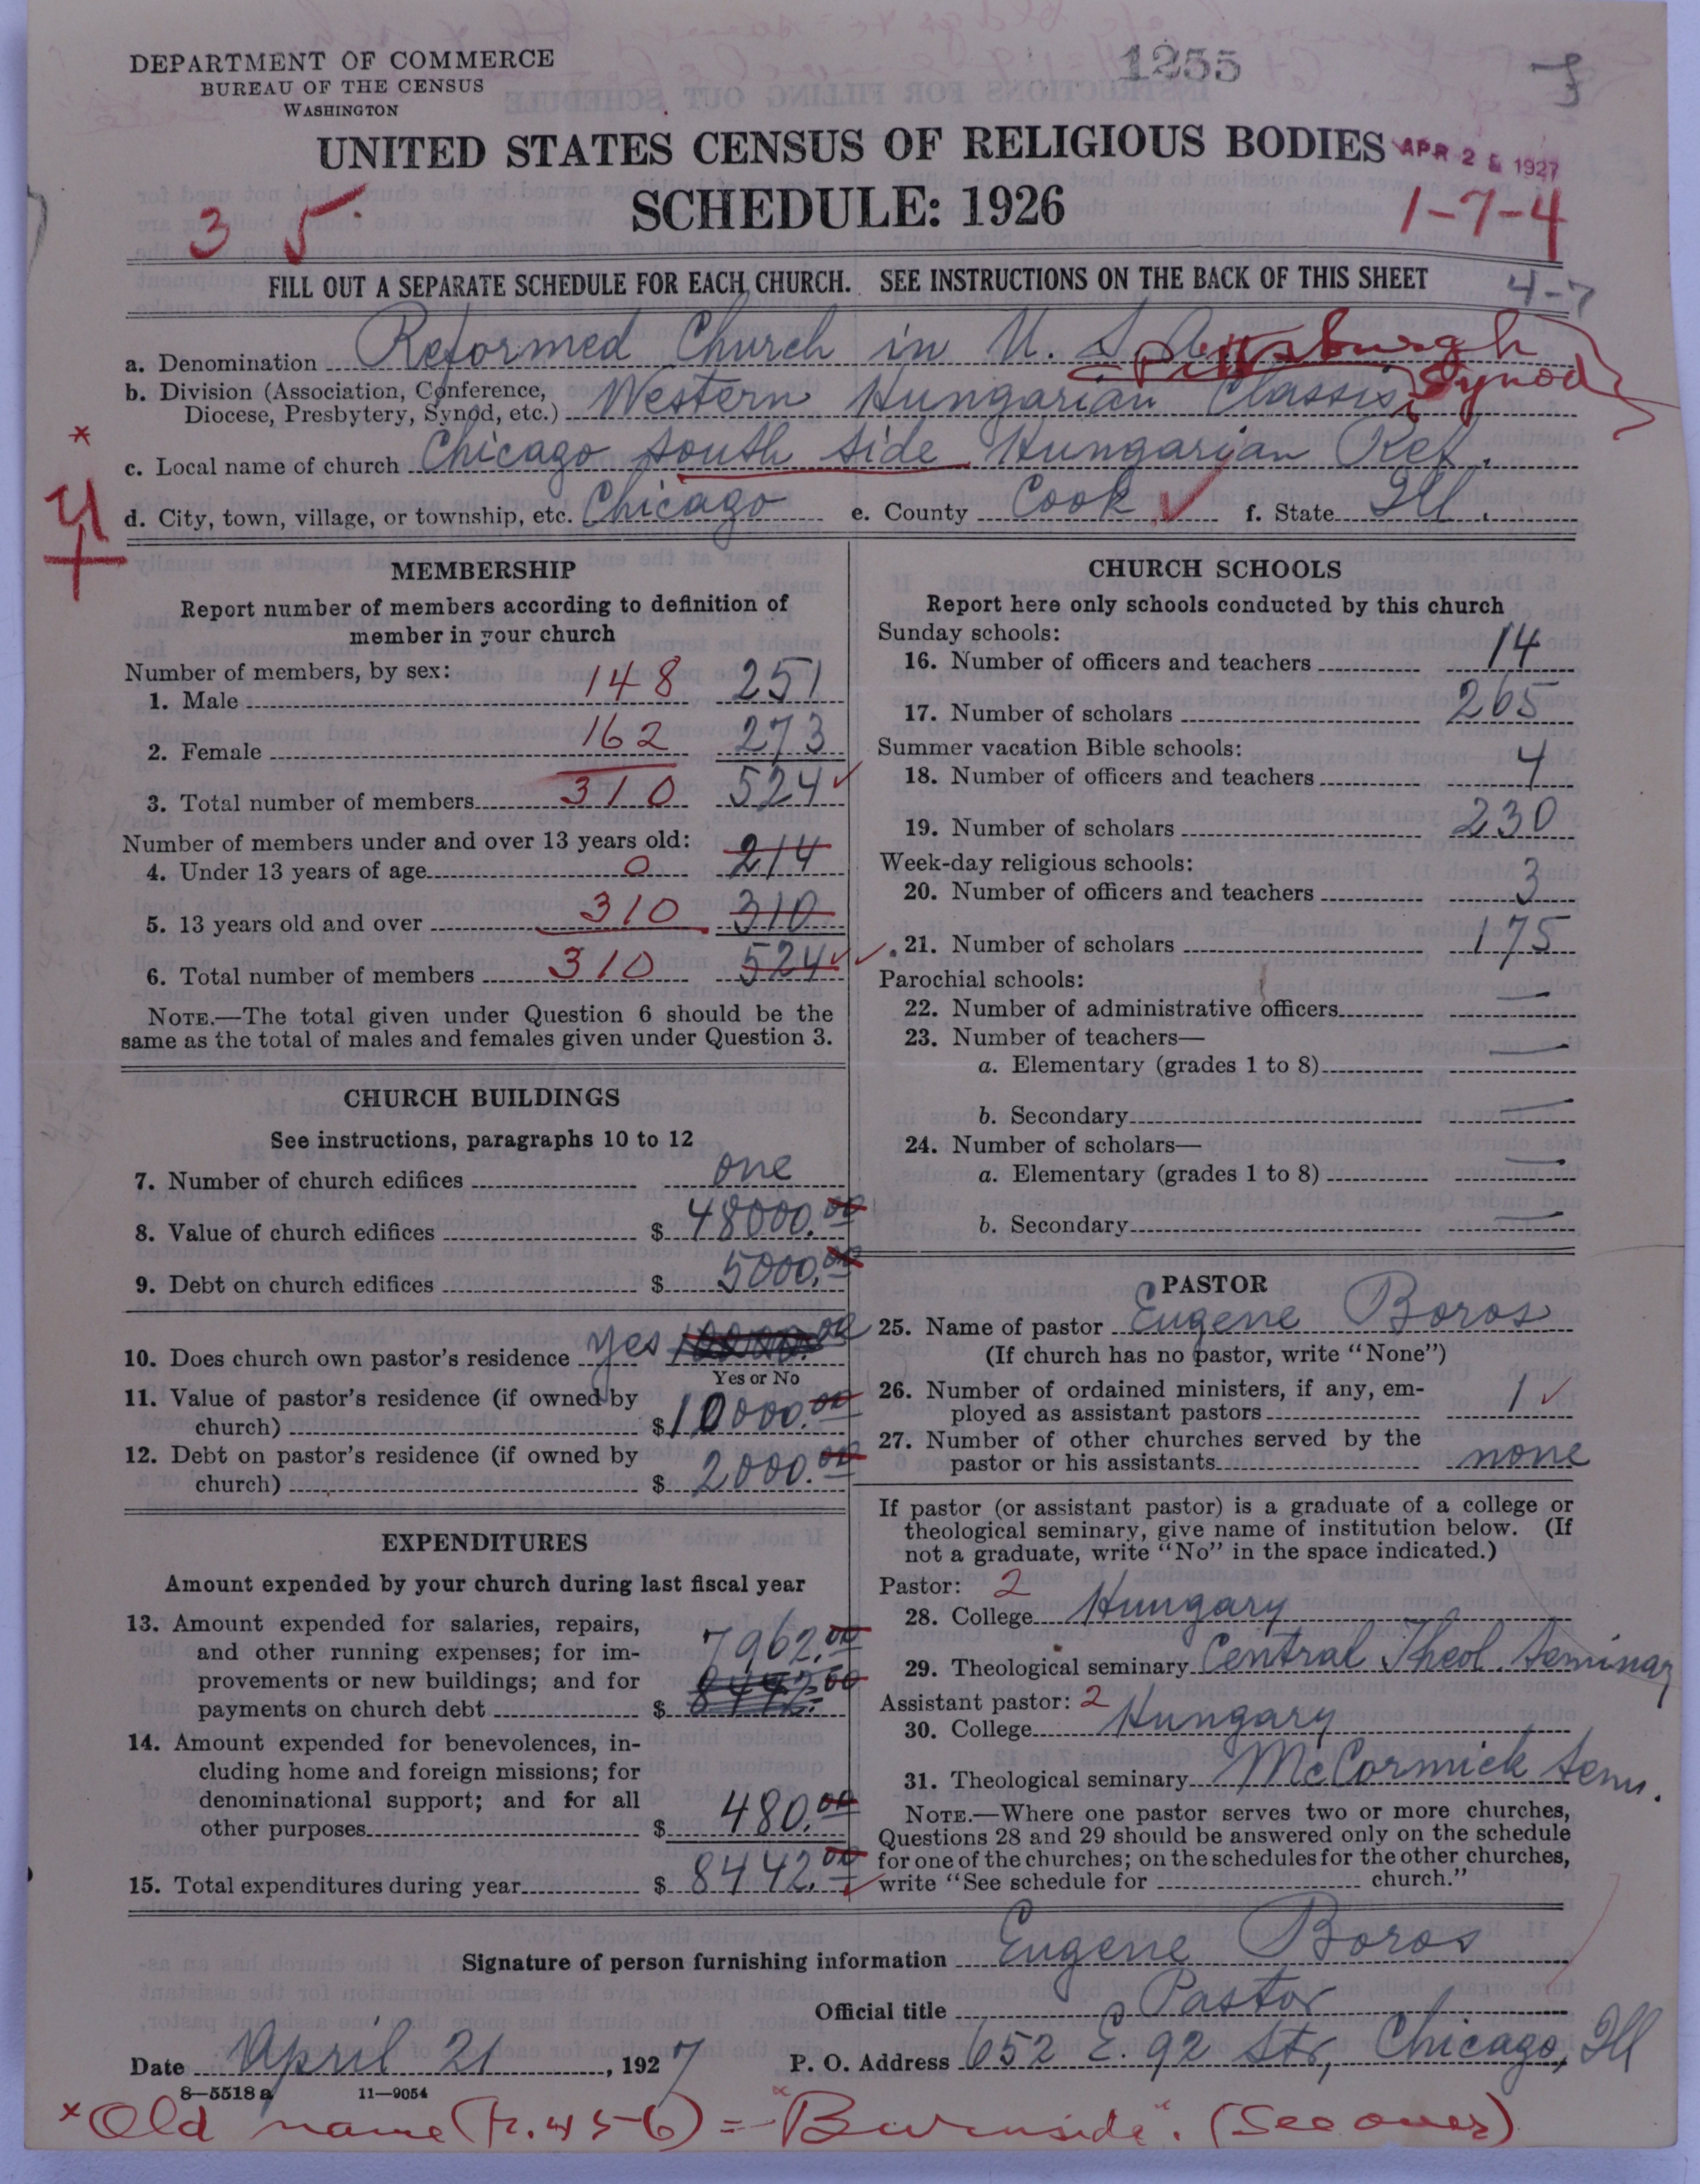 DEPARTMENT OF COMMERCE
BUREAU OF THE CENSUS
WASHINGTON
1255
UNITED STATES CENSUS OF RELIGIOUS BODIES
APR 2 1927
SCHEDULE: 1926
3 5
1-7-4
FILL OUT A SEPARATE SCHEDULE FOR EACH CHURCH. SEE INSTRUCTIONS ON THE BACK OF THIS SHEET
4-7
a. Denomination Reformed Church in U. S. Pittsburgh
b. Division (Association, Conference,
Diocese, Presbytery, Synod, etc.) Western Hungarian Classis Synod
*
c. Local name of church Chicago south side Hungarian Ref.
d. City, town, village, or township, etc. Chicago e. County Cook f. State Ill.
MEMBERSHIP
Report number of members according to definition of
member in your church
Number of members, by sex:
1. Male 148 251
2. Female 162 273
3. Total number of members 310 524
Number of members under and over 13 years old:
4. Under 13 years of age 0 214
5. 13 years old and over 310 310
6. Total number of members 310 524
NOTE.—The total given under Question 6 should be the
same as the total of males and females given under Question 3.
CHURCH BUILDINGS
See instructions, paragraphs 10 to 12
7. Number of church edifices one
8. Value of church edifices $ 48000.00
9. Debt on church edifices $ 5000.00
10. Does church own pastor's residence yes
Yes or No
11. Value of pastor's residence (if owned by
church) $ 10000.00
12. Debt on pastor's residence (if owned by
church) $ 2000.00
EXPENDITURES
Amount expended by your church during last fiscal year
13. Amount expended for salaries, repairs,
and other running expenses; for im-
provements or new buildings; and for
payments on church debt $ 7962.00
8442.00
14. Amount expended for benevolences, in-
cluding home and foreign missions; for
denominational support; and for all
other purposes $ 480.00
15. Total expenditures during year $ 8442.00
CHURCH SCHOOLS
Report here only schools conducted by this church
Sunday schools:
16. Number of officers and teachers 14
17. Number of scholars 265
Summer vacation Bible schools:
18. Number of officers and teachers 4
19. Number of scholars 230
Week-day religious schools:
20. Number of officers and teachers 3
21. Number of scholars 175
Parochial schools:
22. Number of administrative officers —
23. Number of teachers—
a. Elementary (grades 1 to 8) —
b. Secondary —
24. Number of scholars—
a. Elementary (grades 1 to 8) —
b. Secondary —
PASTOR
25. Name of pastor Eugene Boros
(If church has no pastor, write "None")
26. Number of ordained ministers, if any, em-
ployed as assistant pastors 1
27. Number of other churches served by the
pastor or his assistants none
If pastor (or assistant pastor) is a graduate of a college or
theological seminary, give name of institution below. (If
not a graduate, write "No" in the space indicated.)
Pastor: 2
28. College Hungary
29. Theological seminary Central Theol. Seminary
Assistant pastor: 2
30. College Hungary
31. Theological seminary McCormick Sem.
NOTE.—Where one pastor serves two or more churches,
Questions 28 and 29 should be answered only on the schedule
for one of the churches; on the schedules for the other churches,
write "See schedule for church."
Signature of person furnishing information Eugene Boros
Official title Pastor
Date April 21, 1927 P. O. Address 652 E. 92 Str, Chicago, Ill
8—5518 a 11—9054
*Old name (p. 456) = "Burnside". (See over)